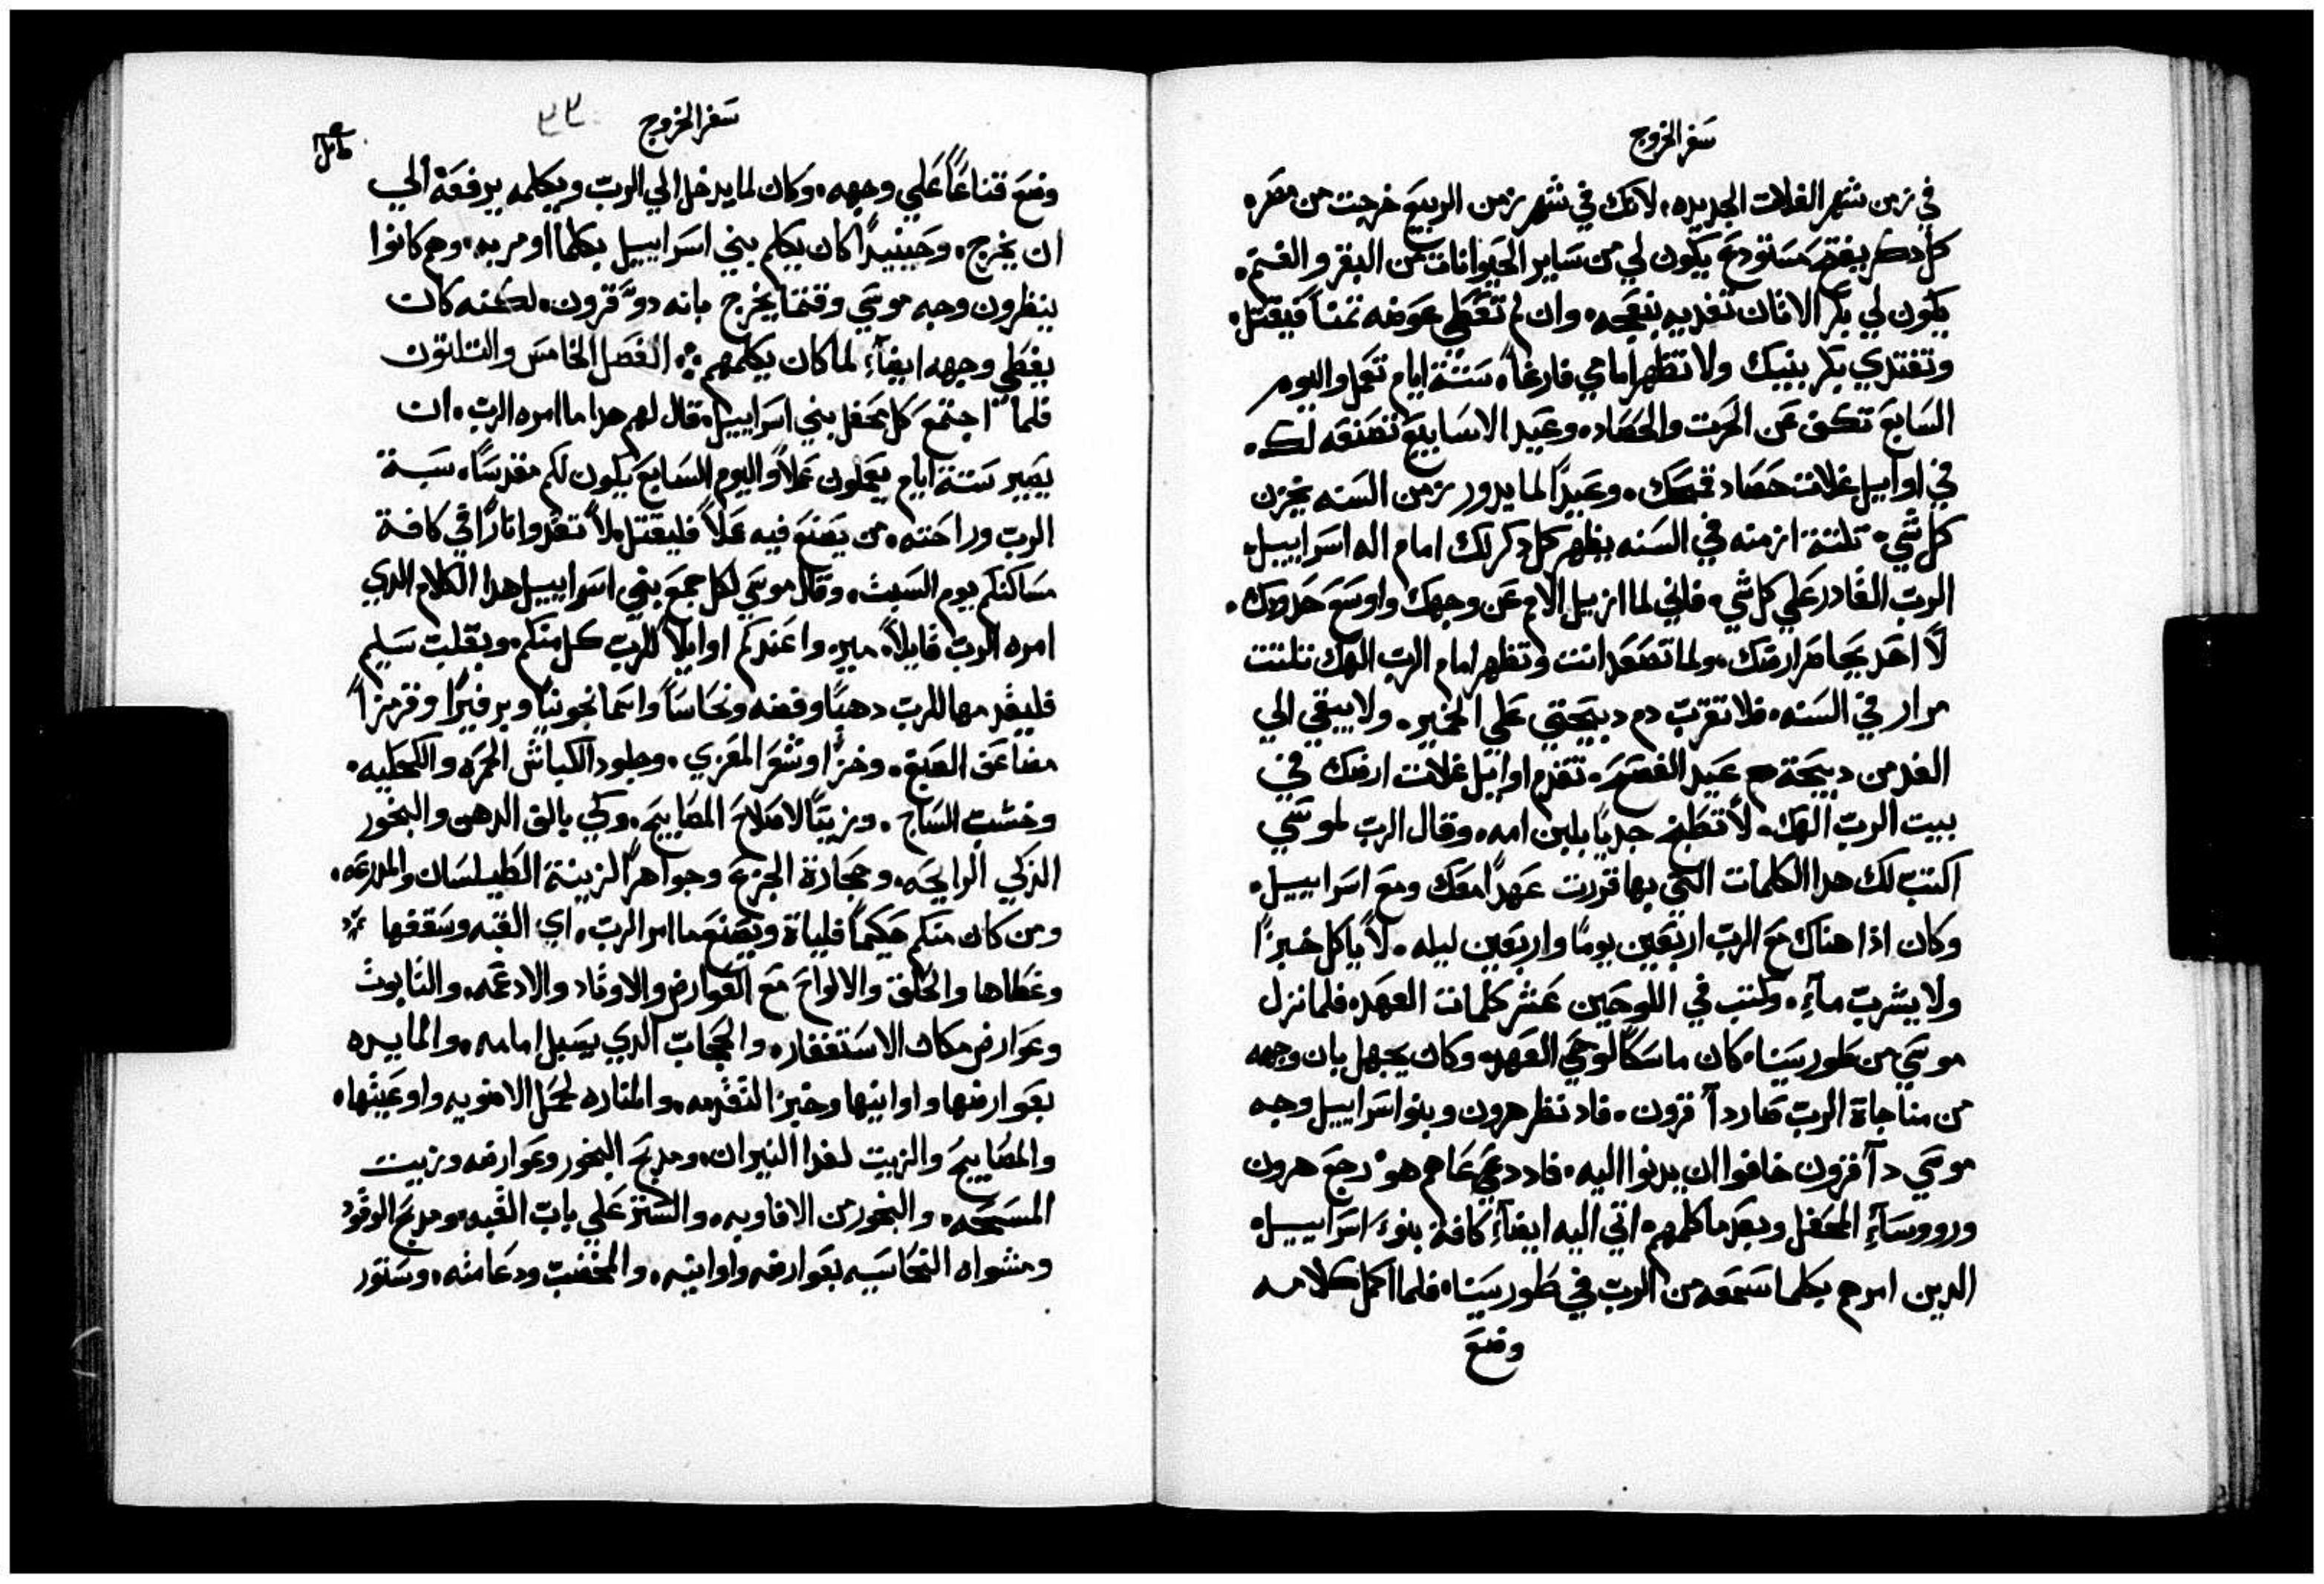 سفر الخروج
في زمن شهر الغلات الجديده، لانك في شهر زمن الربيع خرجت من مصر،
كل دكر يفتح مستودع يكون لي من ساير الحيوانات من البقر والغنم،
يكون لي بكر الاتان تفديه بنعجه، وان لم تعطي عوضه تمناً فيقتل،
وتفتدي بكر بنيك ولا تظهر امامي فارغاً، ستة ايام تعمل واليوم
السابع تكف عن الحرت والحصاد، وعيد الاسابيع تصنعه لك،
في اوايل غلات حصاد قمحك، وعيداً لما يدور زمن السنه يخزن
كل شي، تلتة ازمنه في السنه يظهر كل دكر لك امام اله اسراييل،
الرب القادر علي كل شي، فاني لما ازيل الامم عن وجهك واوسع حدودك،
لا احد يحاصر ارضك، ولما تصعد انت وتظهر امام الرب الهك تلتت
مرار في السنه، فلا تقرب دم دبيحتي علي الخمير، ولا يبقي الي
الغد من دبيحة عيد الفصح، تقدم اوايل غلات ارضك في
بيت الرب الهك، لا تطبخ جدياً بلبن امه، وقال الرب لموسي
اكتب لك هدا الكلمات التي بها قررت عهداً معك ومع اسراييل،
وكان اذا هناك مع الرب اربعين يوماً واربعين ليله، لا ياكل خبزاً
ولا يشرب مآء، وكتب في اللوحين عشر كلمات العهد، فلما نزل
موسي من طور سينا، كان ماسكاً لوحي العهد، وكان يجهل بان وجهه
من مناجاة الرب صار دآ قرون، فاد نظر هرون وبنو اسراييل وجه
موسي دآ قرون خافوا ان يدنوا اليه، فاد دعي عاهم هو رجع هرون
ورووسآء المحفل وبعد ما كلمهم، اتي اليه ايضآء كافة بنو اسراييل،
الدين امرهم بكلما سمعه من الرب في طور سينا، فلما اكمل كلامه
وضع
سفر الخروج ٣٣
وضع قناعاً علي وجهه، وكان لما يدخل الي الرب ويكلمه يرفعه الي
ان يخرج، وحينيداً كان يكلم بني اسراييل بكلما اومر به، وهم كانوا
ينظرون وجه موسي وقتما يخرج بانه دو قرون، لكنه كان
يغطي وجهه ايضآء لما كان يكلمهم ؞ الفصل الخامس والتلتون
فلما اجتمع كل محفل بني اسراييل، قال لهم هدا ما امره الرب، ان
يصير ستة ايام يعملون عملاً واليوم السابع يكون لكم مقدساً، سبة
الرب وراحته، من يصنع فيه عملاً فليقتل، لا تقدوا ناراً في كافة
مساكنكم يوم السبت، وقال موسي لكل جمع بني اسراييل هدا الكلام الدي
امره الرب قايلاً، ميزوا عندكم اوايلاً للرب كل منكم، وبقلب سليم
فليقدمها للرب دهباً وفضه ونحاساً واسمانجونياً وبرفيراً وقرمزاً
مضاعف الصبغ، وخزاً وشعر المعزي، وجلود الكباش الحمره والكحليه،
وخشب الساج، وزيتاً لاصلاح المصابيح، وكي يالف الدهن والبخور
الزكي الرايحه، وحجارة الجزع وجواهراً لزينة الطيلسان والمدرعه،
ومن كان منكم حكيماً فلياة ويصنع ما امر الرب، اي القبه وسقفها
وغطاها والحلق والالواح مع العوارض والاوتاد والادعمه، والتابوت
وعوارض مكان الاستغفار، والحجاب الدي يسبل امامه، والمايده
بعوارضها واوانيها وخبز التقدمه، والمناره لحمل الاضويه واوعيتها،
والمصابيح والزيت لغدا النيران، ومدبح البخور وعوارضه وزيت
المسحه، والبخور من الافاويه، والستر علي باب القبه، ومدبح الوقود
ومشواه النحاسيه بعوارضه واوانيه، والمخضب ودعامته، وستور